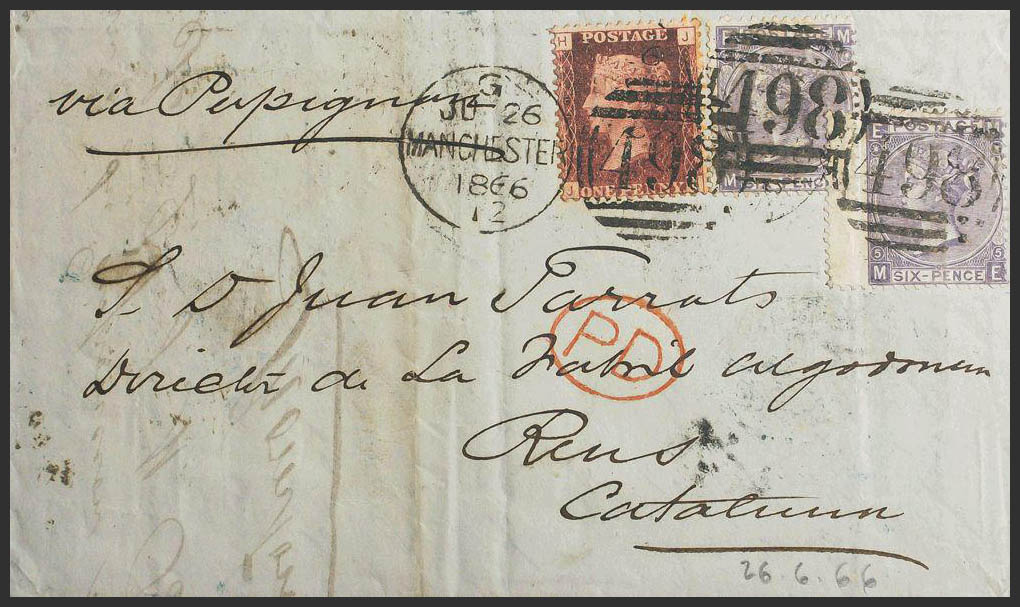 via Perpignan
G
JU 26
MANCHESTER
1866
12
H J
POSTAGE
J ONE PENNY
M
498
M SIX PENCE
498
E POSTAGE
498
5 5
M SIX-PENCE E
S. D Juan Tarrats
PD
Director de La Fabril algodonera
Reus
Cataluna
26.6.66